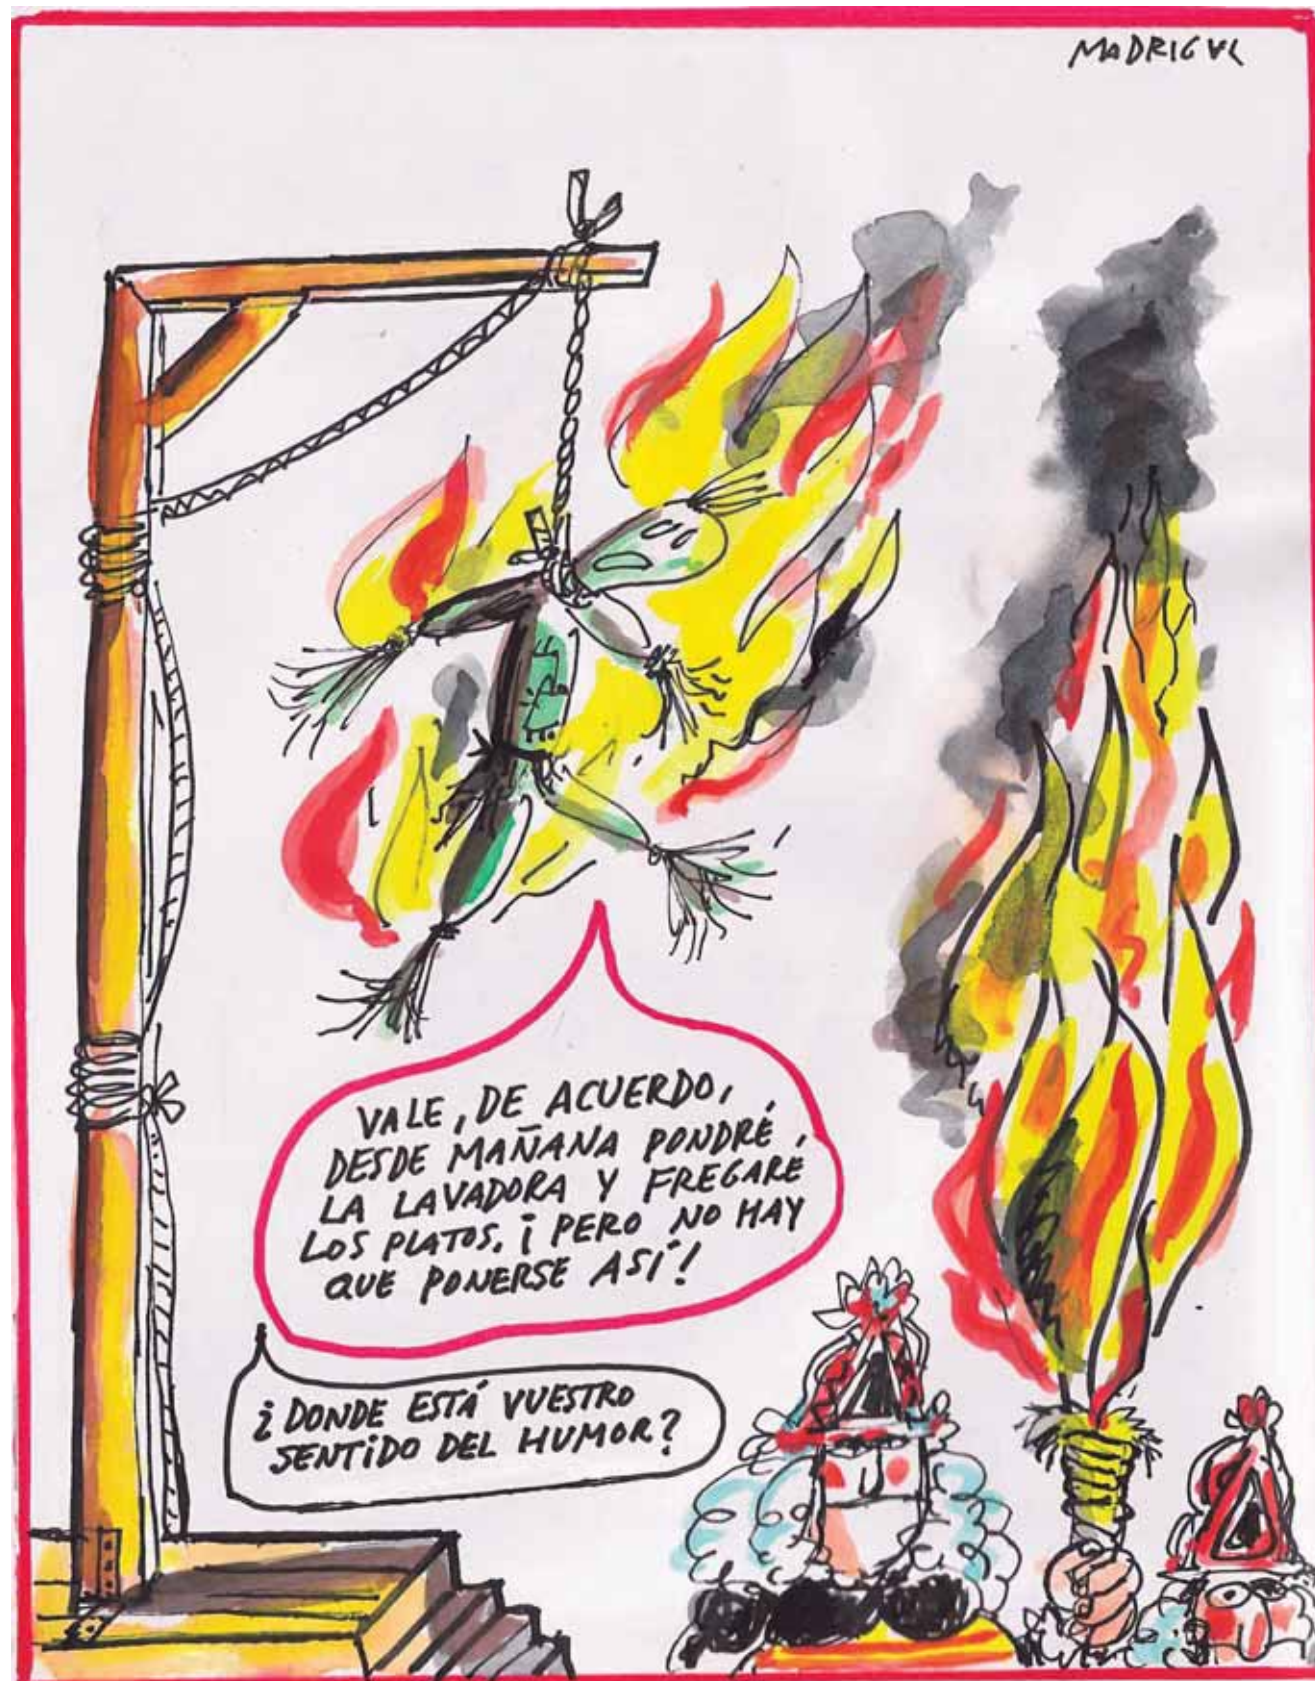 MADRIGAL
VALE, DE ACUERDO,
DESDE MAÑANA PONDRÉ
LA LAVADORA Y FREGARÉ
LOS PLATOS. ¡PERO NO HAY
QUE PONERSE ASÍ!
¿DONDE ESTÁ VUESTRO
SENTIDO DEL HUMOR?